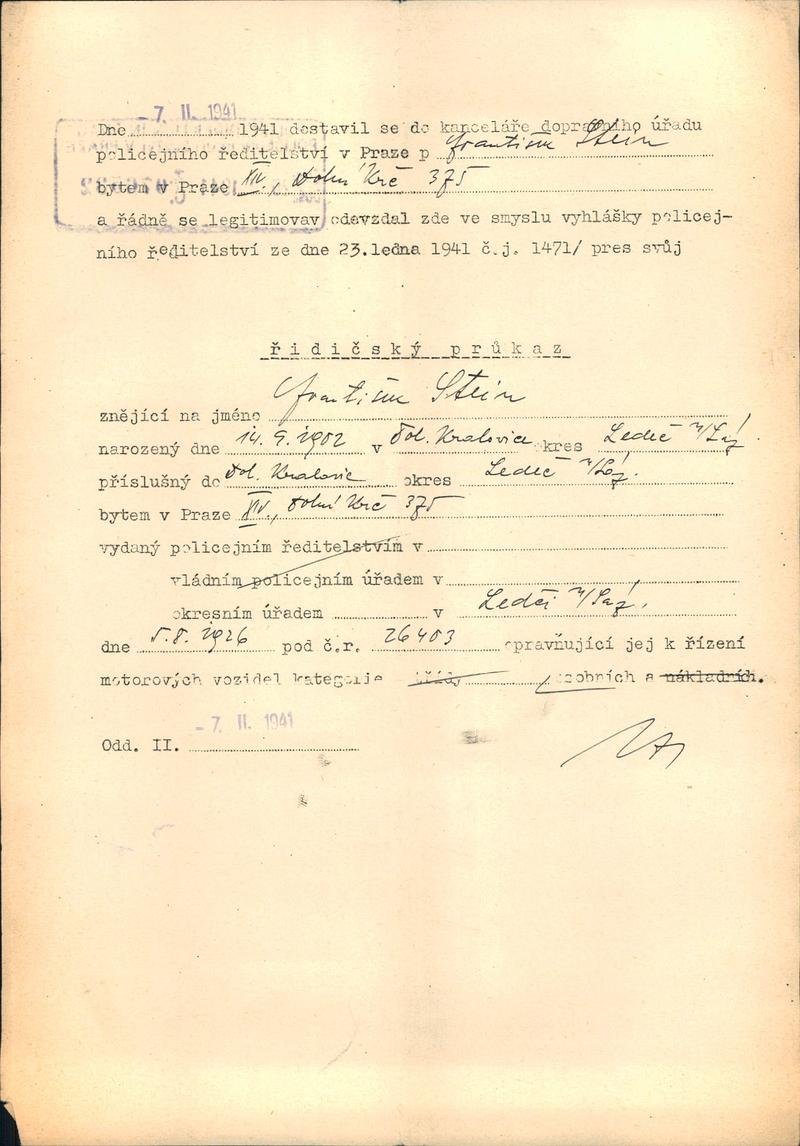 - 7. II. 1941
Dne 1941 dostavil se do kanceláře dopravního úřadu
policejního ředitelství v Praze p František Stein
bytem v Praze XIV., Dolní Krč 375
a řádně se legitimovav odevzdal zde ve smyslu vyhlášky policej-
ního ředitelství ze dne 23.ledna 1941 č.j. 1471/ pres svůj
řidičský průkaz
František Stein
znějící na jméno
narozený dne 14. 9. 1902 v Dol. Kralovice okres Ledeč n/Sáz.
příslušný do Dol. Kralovic okres Ledeč n/Sáz.
bytem v Praze XIV., Dolní Krč 375
vydaný policejním ředitelstvím v
vládním policejním úřadem v
okresním úřadem v Ledči n/Sáz.
dne 5. 8. 1926 pod č.r. 26403 opravňující jej k řízení
motorových vozidel kategorie osobních a nákladních.
- 7. II. 1941
Odd. II.